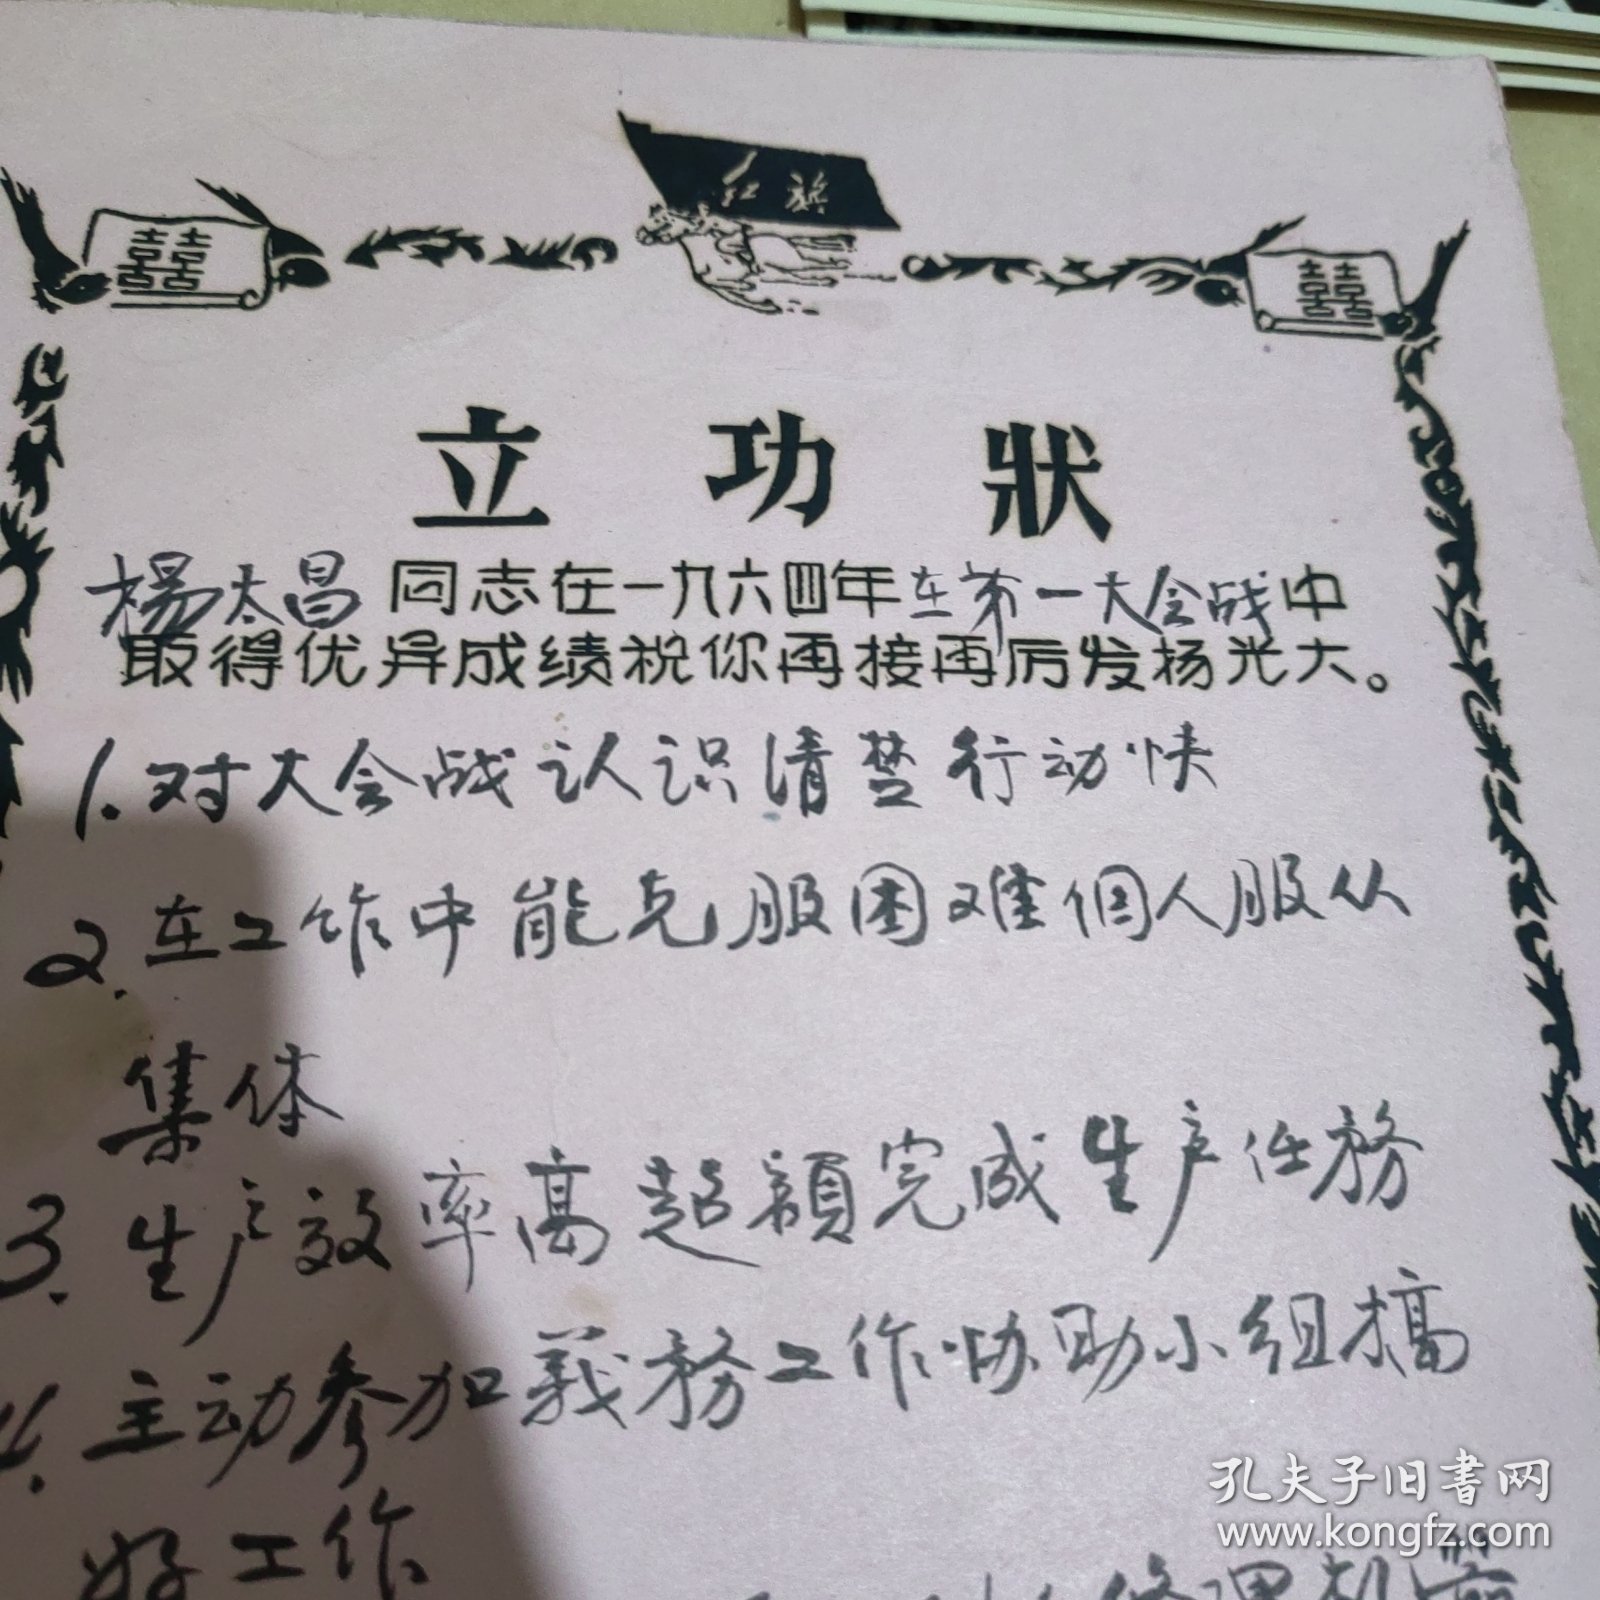 红旗
囍
囍
立功狀
楊太昌同志在一九六四年在第一大会战中
取得优异成绩祝你再接再厉发扬光大。
1.对大会战认识清楚行动快
2.在工作中能克服困难個人服从
集体
3.生产效率高超額完成生产任務
4.主动参加義務工作协助小组搞
好工作
修理机器
孔夫子旧書网
www.kongfz.com